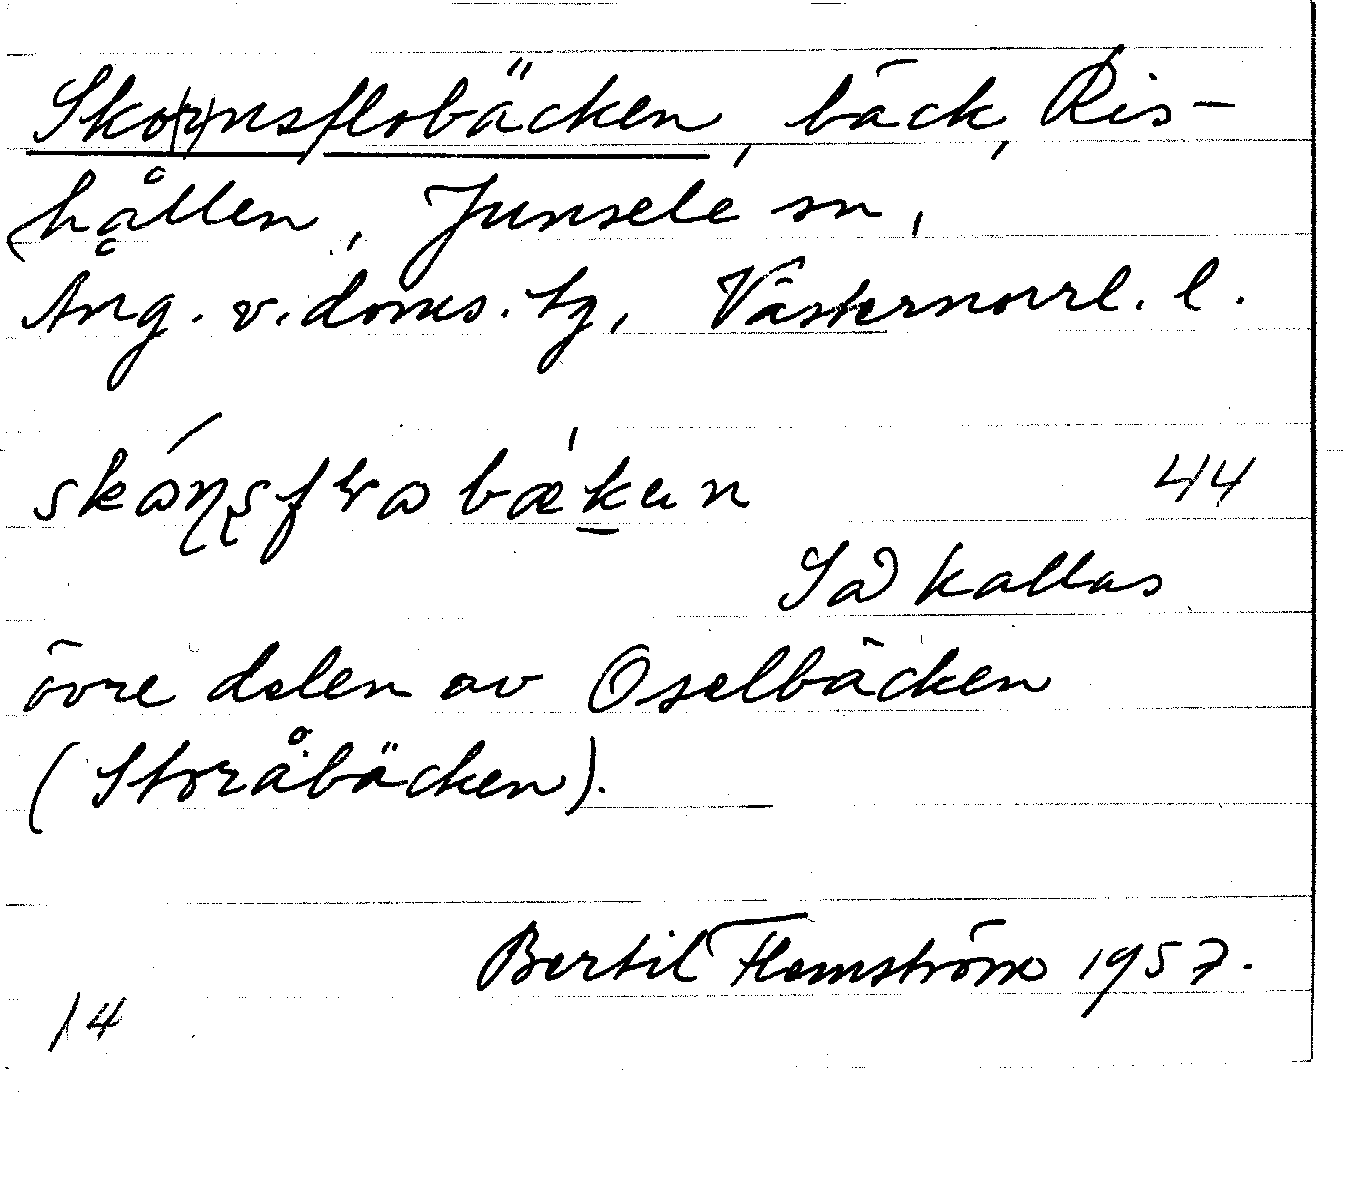 Sko(r)nsflobäcken, bäck, Ris-
hållen, Junsele sn,
Ång. v. doms. tg, Västernorrl. l.
44
Så kallas
övre delen av Oselbäcken
(Storåbäcken).
Bertil Flemström 1957.
14